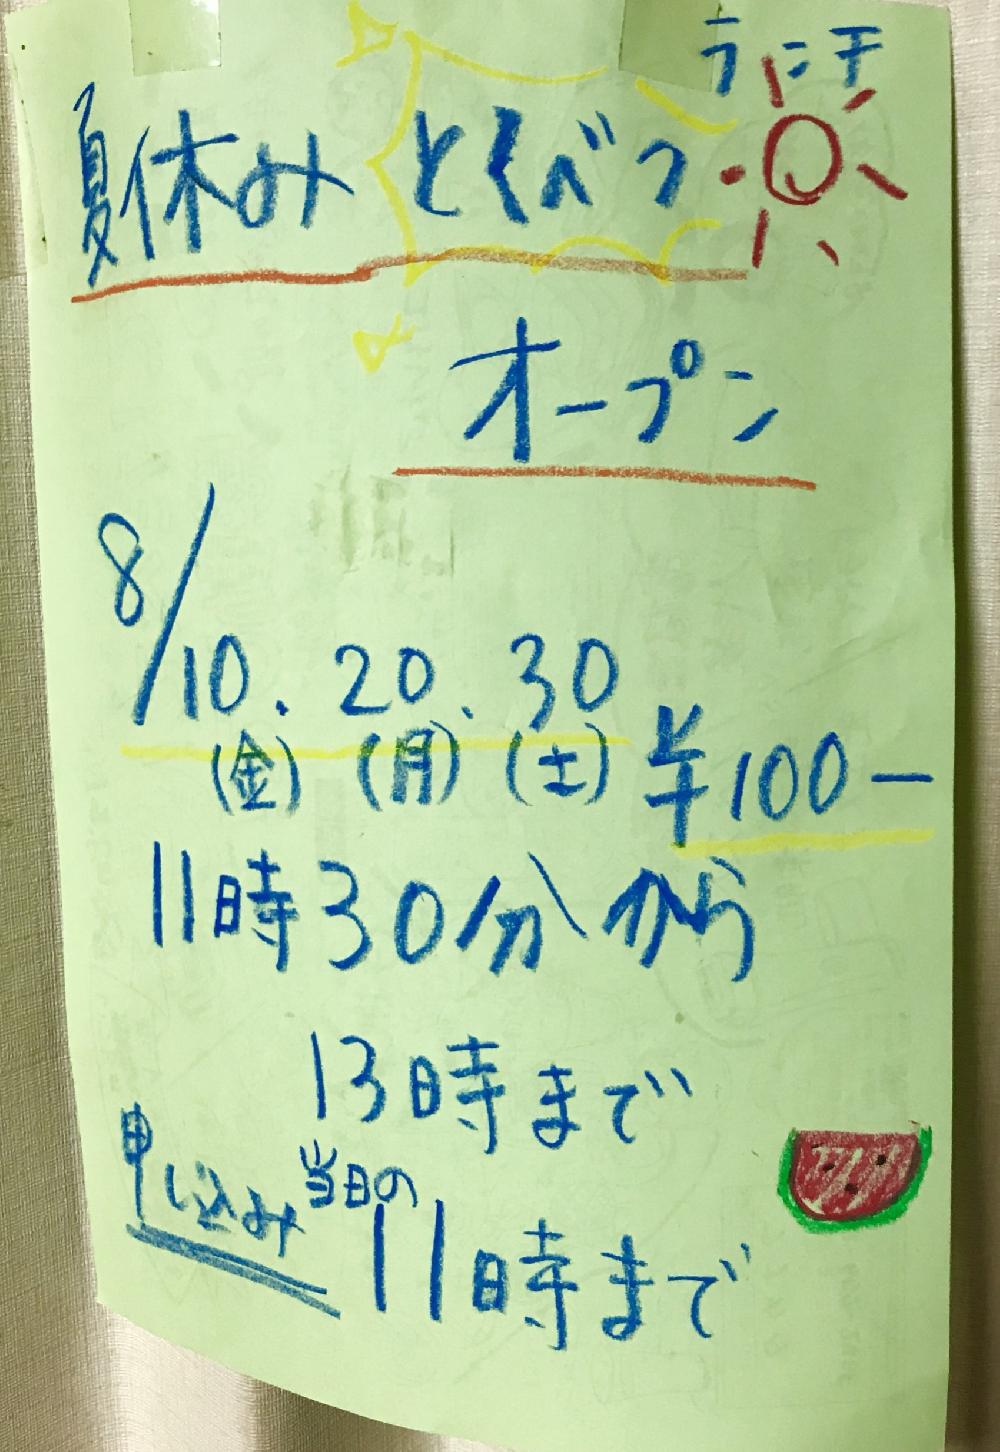 ランチ
夏休みとくべつ
オープン
8/10.20.30
(金)(月)(土) ¥100ー
11時30分から
13時まで
申し込み 当日の
11時まで